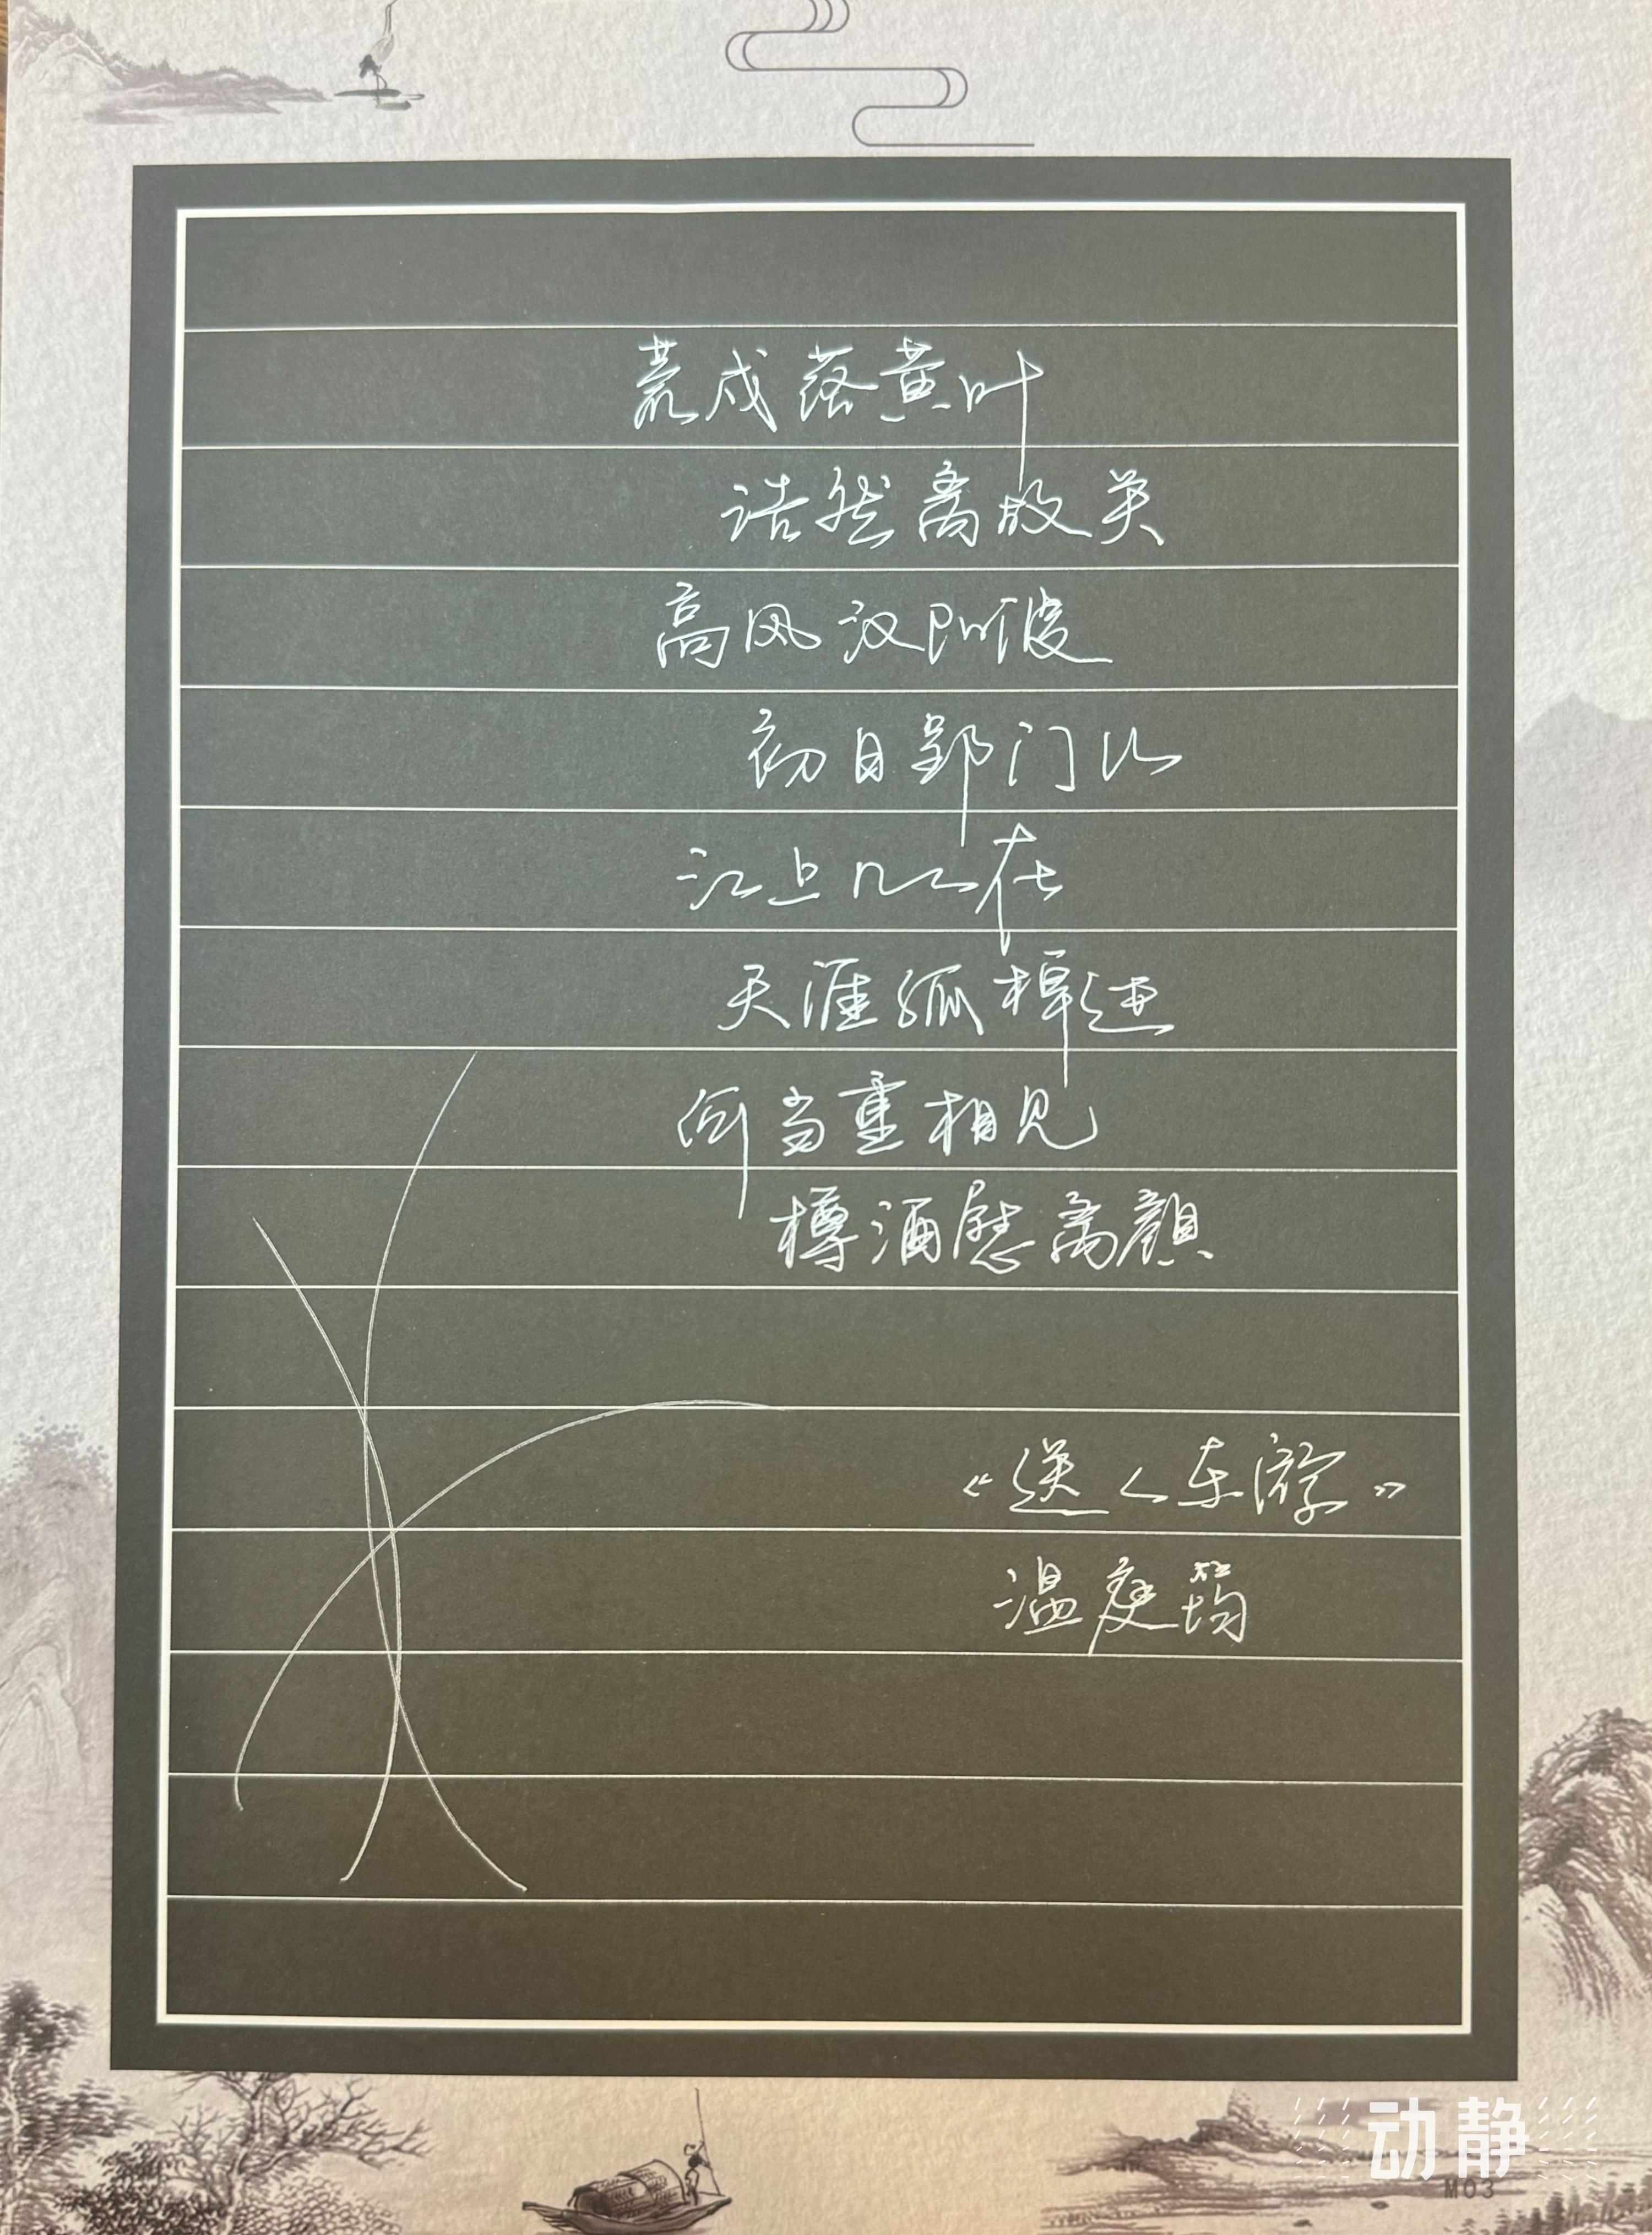 荒戍落黄叶
浩然离故关
高风汉阳渡
初日郢门山
江上几人在
天涯孤棹还
何当重相见
樽酒慰离颜
《送人东游》
温庭筠
动静
M03